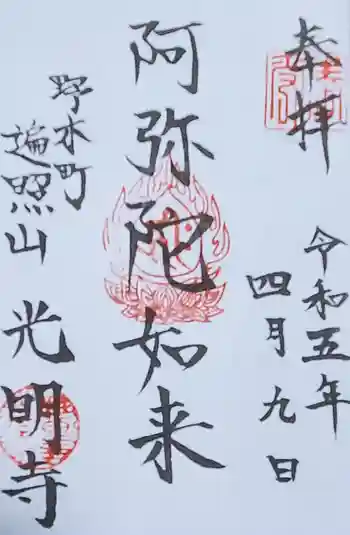 奉拝
令和五年
四月九日
阿弥陀如来
野木町
遍照山
光明寺